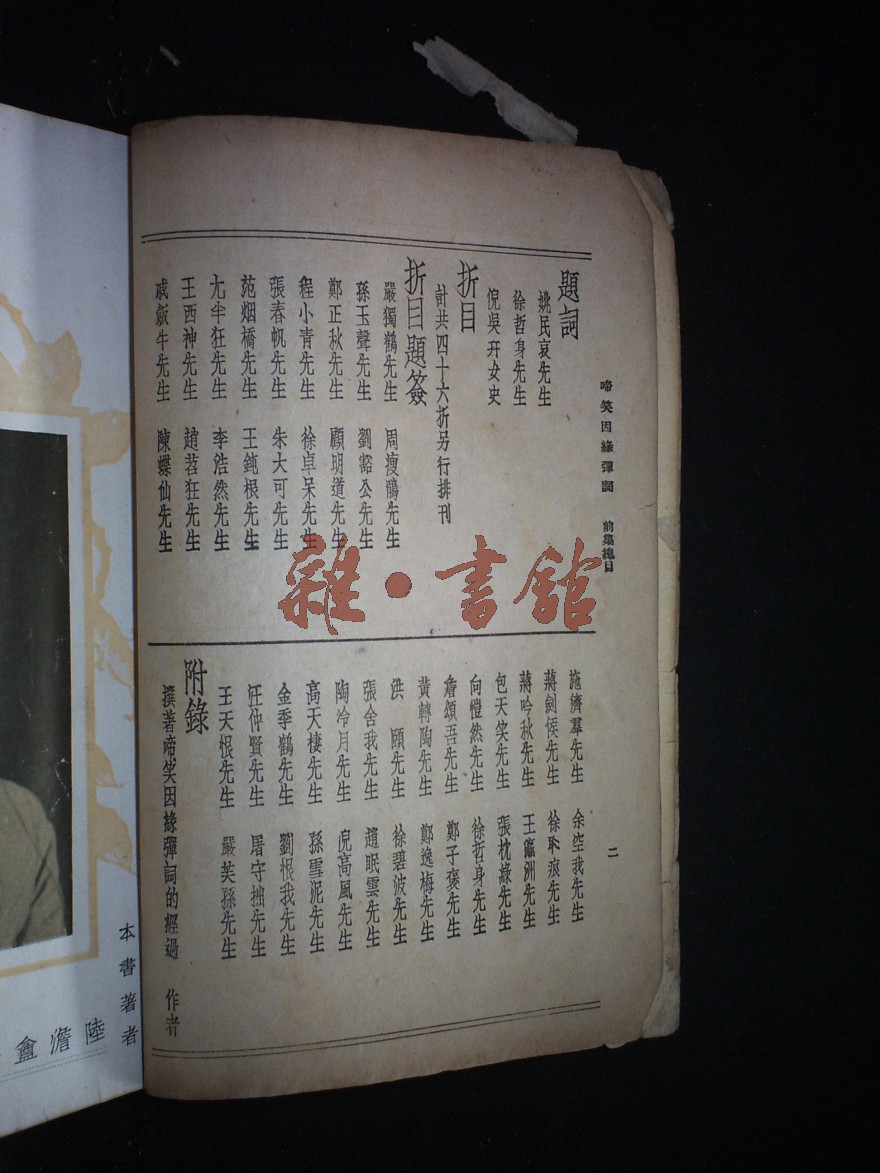 啼笑因緣彈詞 前集總目
二
題詞
姚民哀先生
徐哲身先生
倪吳开女史
折目
計共四十六折另行排刊
折目題簽
嚴獨鶴先生 周瘦鵑先生
孫玉聲先生 劉豁公先生
鄭正秋先生 顧明道先生
程小青先生 徐卓呆先生
張春帆先生 朱大可先生
范烟橋先生 王鈍根先生
尢半狂先生 李浩然先生
王西神先生 趙苕狂先生
戚飯牛先生 陳蝶仙先生
施濟羣先生 余空我先生
蔣劍侯先生 徐恥痕先生
蔣吟秋先生 王瀛洲先生
包天笑先生 張枕綠先生
向愷然先生 徐哲身先生
詹頌吾先生 鄭子褒先生
黃轉陶先生 鄭逸梅先生
洪 頤先生 徐碧波先生
張舍我先生 趙眠雲先生
陶冷月先生 倪高風先生
高天棲先生 孫雪泥先生
金季鶴先生 劉恨我先生
汪仲賢先生 屠守拙先生
王天恨先生 嚴芙孫先生
附錄
撰著啼笑因緣彈詞的經過 作者
本書著者
陸澹盦
雜·書館